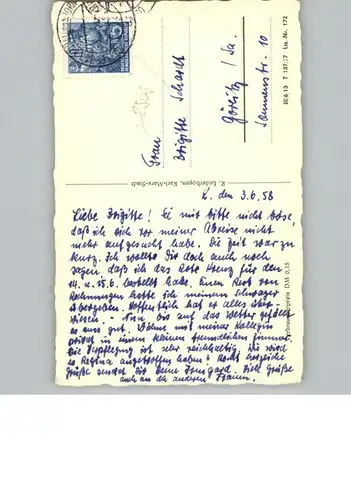 Frau
Brigitte Schardt
Görlitz / Sa.
Sonnenstr. 10
III.6.13 T 137/57 Liz. Nr. 172
R. Lederbogen, Karl-Marx-Stadt
Verbraucherpreis DM 0,15
K. den 3.6.58
Liebe Brigitte! Sei mir bitte nicht böse,
daß ich dich vor meiner Abreise nicht
mehr aufgesucht habe. Die Zeit war zu
kurz. Ich wollte Dir doch auch noch
sagen, daß ich das Rote Kreuz für den
14. u. 15.6. bestellt habe. Einen Rest von
Rechnungen hatte ich meinem Schwager
übergeben. Hoffentlich hat er alles über-
wiesen. - Nun bis auf das Wetter gefällt
es uns gut. Wohne mit meiner Kollegin
privat in einem kleinen freundlichen Zimmer.
Die Verpflegung ist sehr reichhaltig. Wie wird
es Regina angetroffen haben? Recht herzliche
Grüße sendet Dir Deine Irmgard. Viele Grüße
auch an die anderen Frauen.